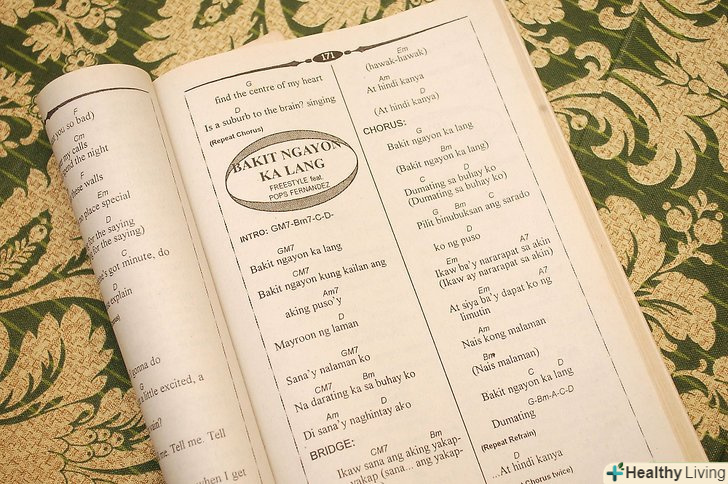 F
you so bad)
Cm
my calls
spend the night
F
these walls
Em
no place special
D
for the saying
for the saying)
C
got minute, do
D
explain
gonna do
G
a little excited, a
me. Tell me. Tell
when I get
171
G
find the centre of my heart
D
Is a suburb to the brain? singing
(Repeat Chorus)
BAKIT NGAYON
KA LANG
FREESTYLE feat.
POPS FERNANDEZ
INTRO: GM7-Bm7-C-D-
GM7
Bakit ngayon ka lang
CM7
Bakit ngayon kung kailan ang
Am7
aking puso'y
D
Mayroon ng laman
GM7
Sana'y nalaman ko
CM7 Bm
Na darating ka sa buhay ko
Am D
Di sana'y naghintay ako
BRIDGE:
CM7 Bm
Ikaw sana ang aking yakap-
yakap (sana... ang yakap-
Em
(hawak-hawak)
Am
At hindi kanya
D
(At hindi kanya)
CHORUS:
G
Bakit ngayon ka lang
Bm
(Bakit ngayon ka lang)
C D
Dumating sa buhay ko
(Dumating sa buhay ko)
G Bm C
Pilit binubuksan ang sarado
D
ko ng puso
Em A7
Ikaw ba'y nararapat sa akin
(Ikaw ay nararapat sa akin)
Em A7
At siya ba'y dapat ko ng
limutin
Am
Nais kong malaman
Bm
(Nais malaman)
C D
Bakit ngayon ka lang
G-Bm-A-C-D
Dumating
(Repeat Refrain)
D
...At hindi kanya
Chorus twice)
Healthy Living